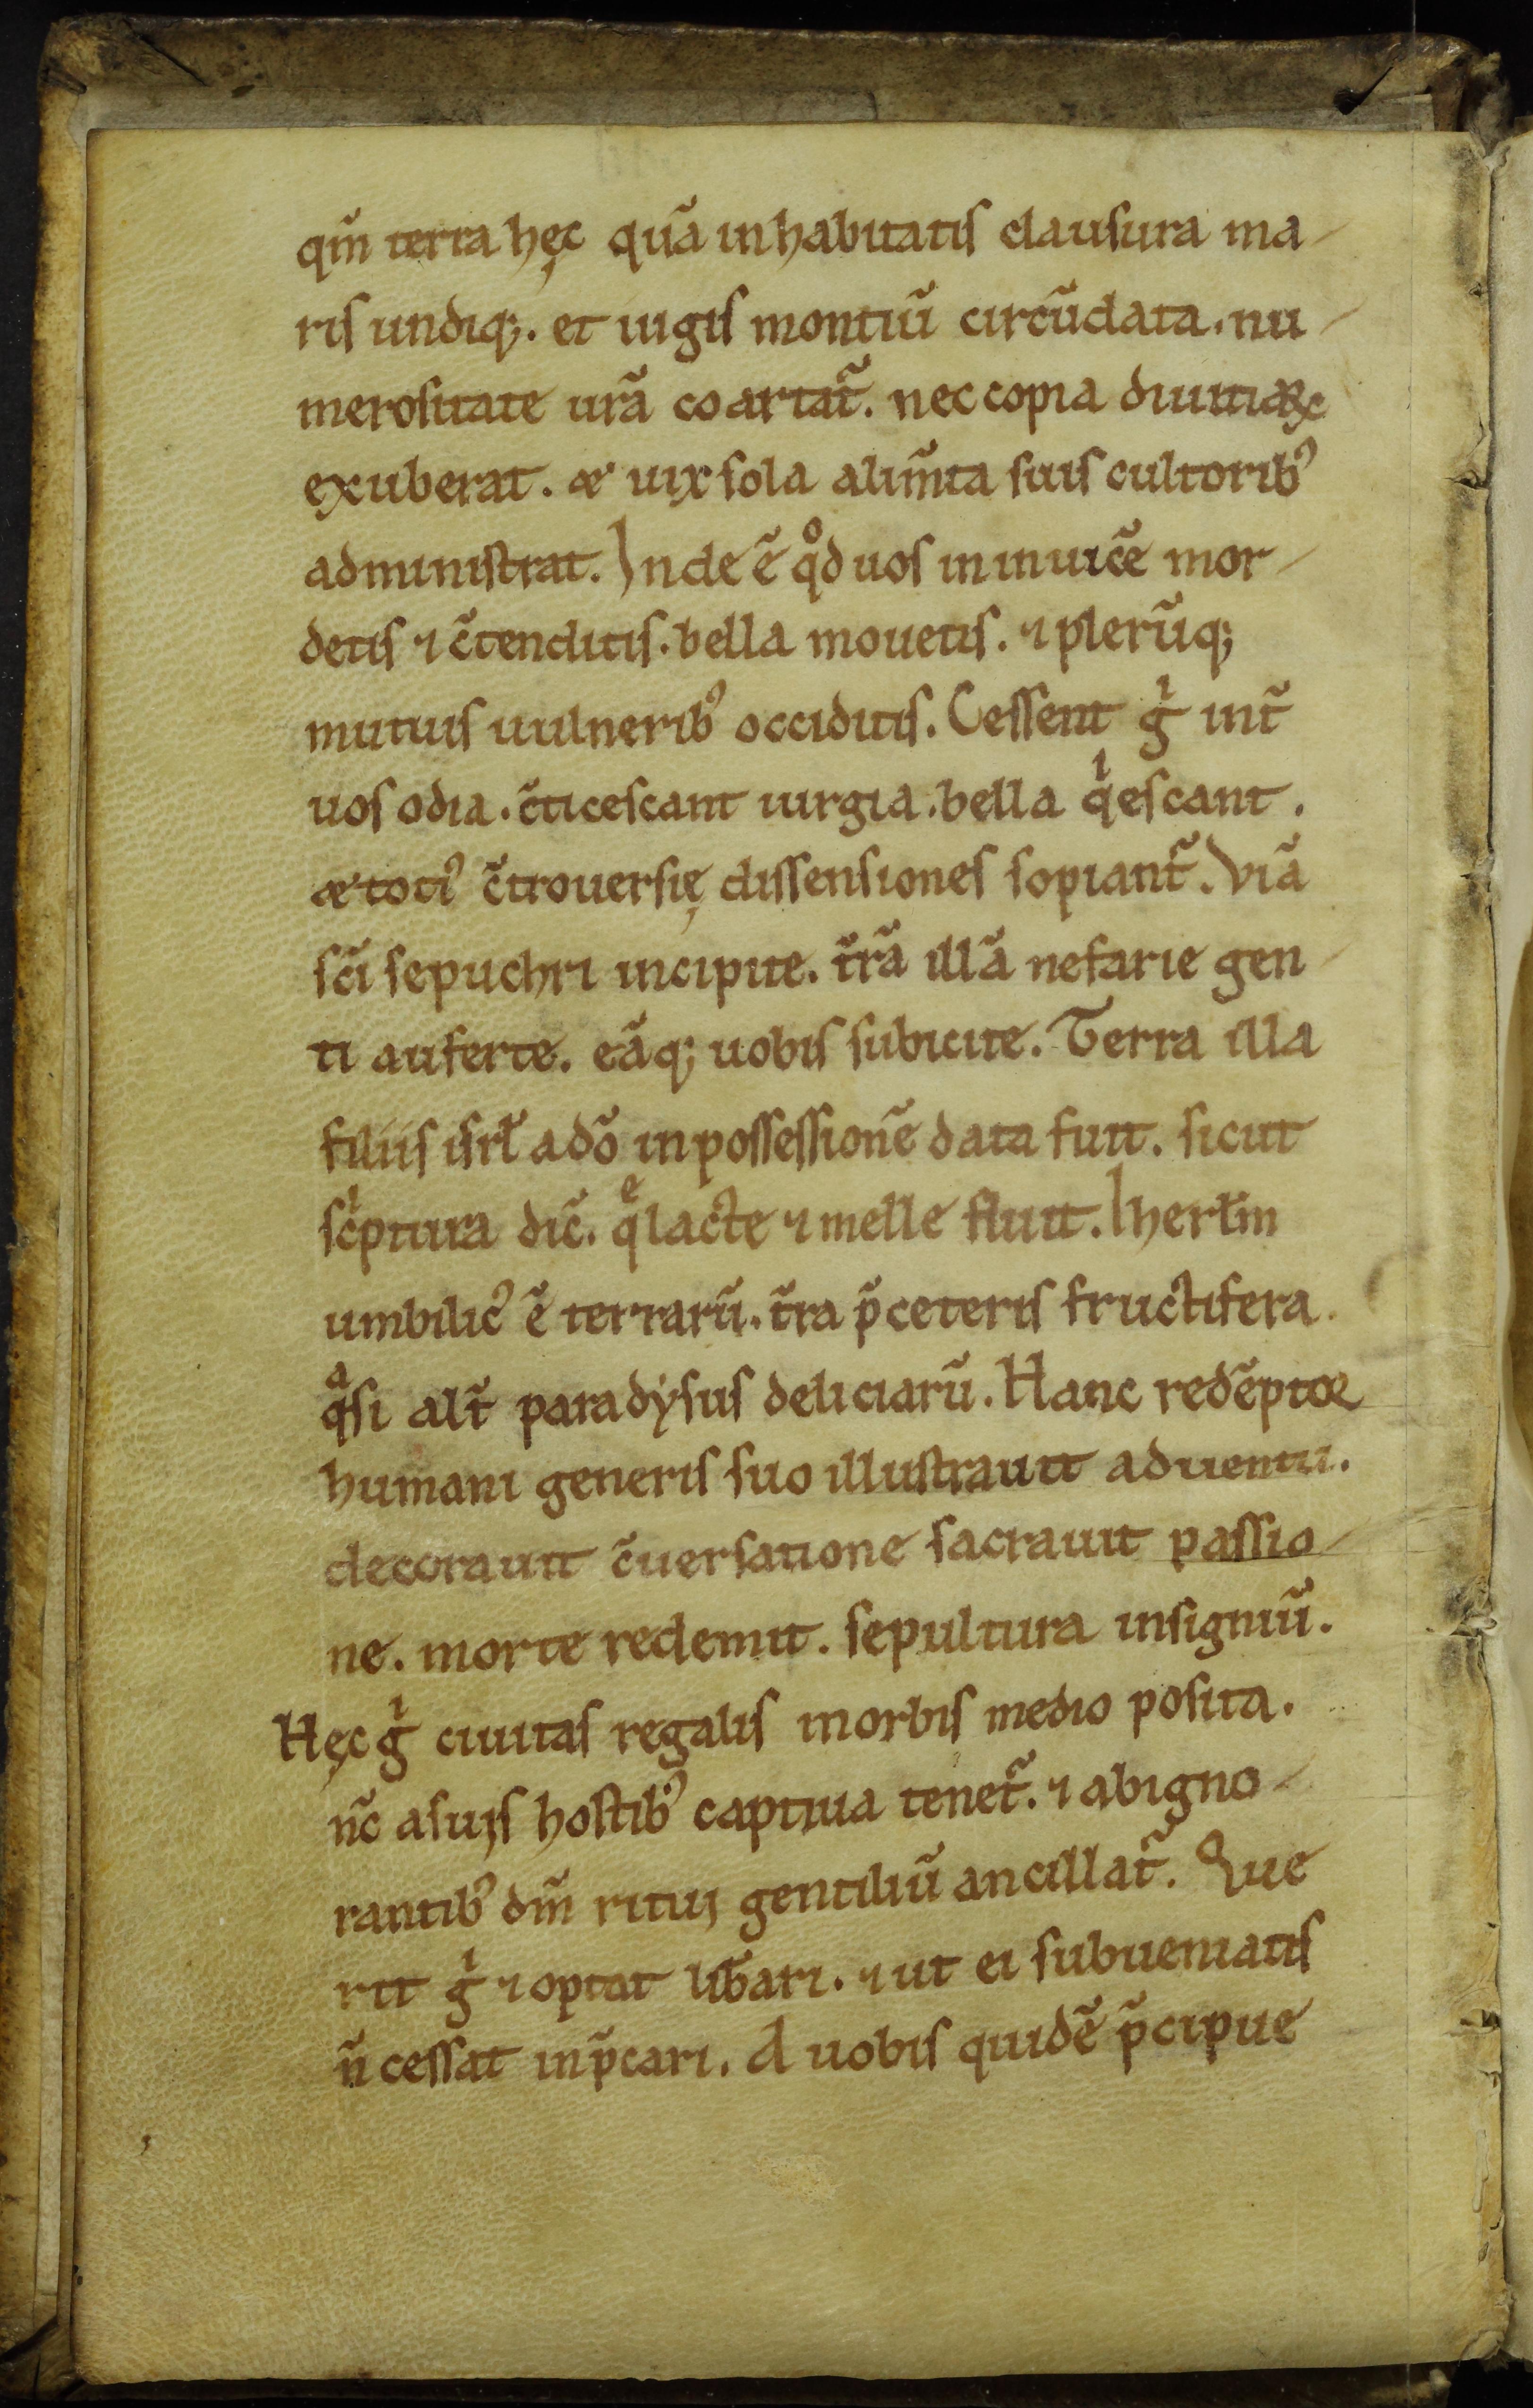 qm̃ terra hęc quã inhabitatis clausura ma-
ris undiq;. et iugis montiũ circũdata. nu-
merositate urã coartat̃. nec copia diuitiaꝝ
exuberat. & uix sola alim̃ta suis cultorib᾽
administrat. Inde ẽ qͦd uos in inuicẽ mor-
detis ⁊ c̃tenditis. bella mouetis. ⁊ plerũq;
mutuis uulnerib᾽ occiditis. Cessent gͥ int̃
uos odia. c̃ticescant iurgia. bella qͥescant.
& toti᾽ c̃trouersię dissensiones sopiant̃. Viã
sc̃i sepuchri incipite. t̃rã illã nefarie gen-
ti auferte. eãq; uobis subicite. Terra illa
filiis isrł a dõ in possessionẽ data fuit. sicut
scͥptura dic̃. qͤ lacte ⁊ melle fluit. Iherłm
umbilic᾽ ẽ terrarũ. t̃ra p̃ ceteris fructifera.
qͣsi alt̃ paradẏsus deliciarũ. Hanc redẽptor
humani generis suo illustrauit aduentu.
decorauit c̃uersatione sacrauit passio-
ne. morte redemit. sepultura insigniũ.
Hęc gͥ ciuitas regalis in orbis medio posita.
nc̃ a suis hostib᾽ captiua tenet̃. ⁊ ab igno-
rantib᾽ dm̃ ritui gentiliũ ancillat̃. Que
rit gͥ ⁊ optat lib̃ari. ⁊ ut ei subueniatis
ñ cessat inp̃cari. A uobis quidẽ p̃cipue